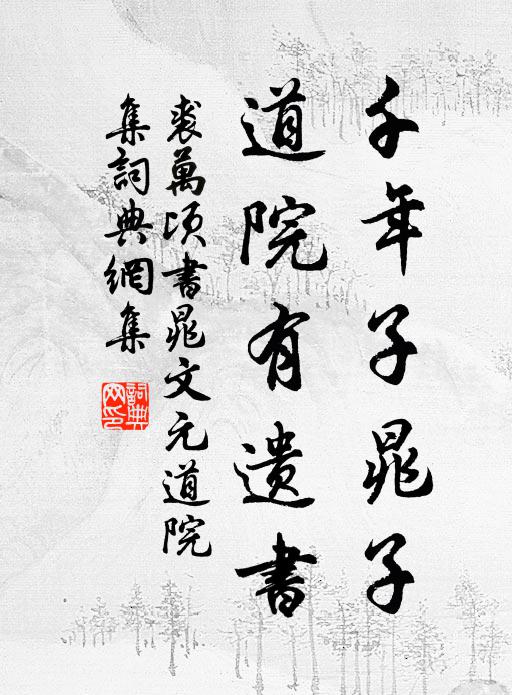 千年子晁子
道院有遗書
裘萬頃書晁文元道院
集詞典網集
詞典网印